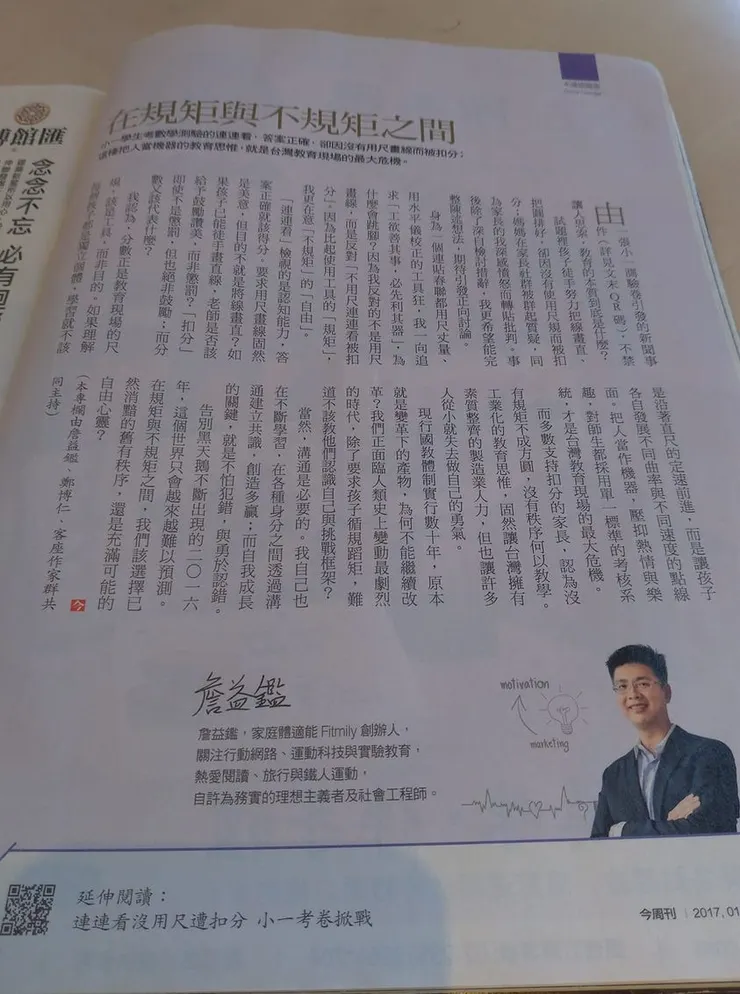 在規矩與不規矩之間
小一學生考數學測驗的連連看，答案正確，卻因沒有用尺畫線而被扣分；
這種把人當機器的教育思惟，就是台灣教育現場的最大危機。
由一張小一測驗卷引發的新聞事
件（詳見文末QR碼），不禁
讓人思索，教育的本質到底是什麼？
試題裡孩子徒手努力把線畫直、
把圖排好，卻因沒有使用尺規而被扣
分，媽媽在家長社群被群起質疑，同
為家長的我深感憤怒而轉貼批判。事
後除了深自檢討措辭，我更希望能完
整陳述想法，期待引發正向討論。
身為一個連貼春聯都用尺丈量、
用水平儀校正的工具狂，我一向追
求「工欲善其事，必先利其器」，為
什麼會跳腳？因為我反對的不是用尺
畫線，而是反對「不用尺連連看被扣
分」，因為比起使用工具的「規矩」，
我更在意「不規矩」的「自由」。
「連連看」檢視的是認知能力，答
案正確就該得分，要求用尺畫線固然
是美意，但目的不就是將線畫直？如
果孩子已能徒手畫直線，老師是否該
給予鼓勵讚美，而非懲罰？「扣分」
即使不是懲罰，但也絕非鼓勵；而分
數又該代表什麼？
我認為，分數正是教育現場的尺
規，該是工具，而非目的。如果理解
每個孩子都是獨立個體，學習就不該
是沿著直尺的定速前進，而是讓孩子
各自發展不同曲率與不同速度的點線
面。把人當作機器，壓抑熱情與樂
趣，對師生都採用單一標準的考核系
統，才是台灣教育現場的最大危機。
而多數支持扣分的家長，認為沒
有規矩不成方圓，沒有秩序何以教學。
工業化的教育思惟，固然讓台灣擁有
素質整齊的製造業人力，但也讓許多
人從小就失去做自己的勇氣。
現行國教體制實行數十年，原本
就是變革下的產物，為何不能繼續改
革？我們正面臨人類史上變動最劇烈
的時代，除了要求孩子循規蹈矩，難
道不該教他們認識自己與挑戰框架？
當然，溝通是必要的。我自己也
在不斷學習，在各種身分之間透過溝
通建立共識，創造多贏；而自我成長
的關鍵，就是不怕犯錯，與勇於認錯。
告別黑天鵝不斷出現的二〇一六
年，這個世界只會越來越難以預測。
在規矩與不規矩之間，我們該選擇已
然消黯的舊有秩序，還是充滿可能的
自由心靈？
（本專欄由詹益鑑、鄭博仁、客座作家群共
同主持）
今
詹益鑑
詹益鑑，家庭體適能 Fitmily 創辦人，
關注行動網路、運動科技與實驗教育，
熱愛閱讀、旅行與鐵人運動，
自許為務實的理想主義者及社會工程師。
motivation
marketing
延伸閱讀：
連連看沒用尺遭扣分 小一考卷掀戰
今周刊 2017. 01
館匯
念念不忘 必有